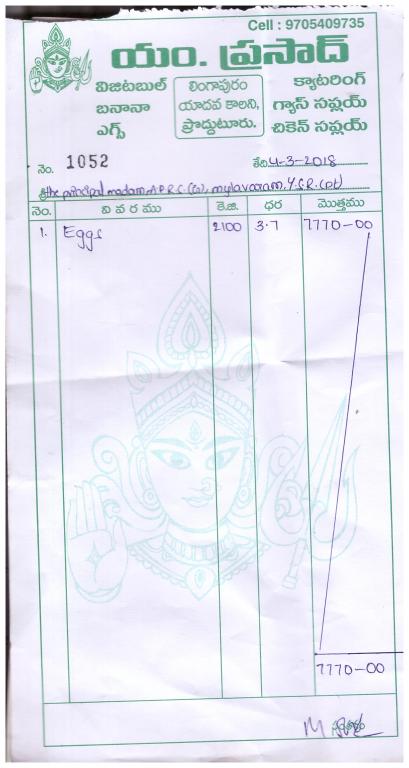 Cell : 9705409735
యం. ప్రసాద్
విజిటబుల్
బనానా
ఎగ్స్
లింగాపురం
యాదవ కాలని,
ప్రొద్దుటూరు.
క్యాటరింగ్
గ్యాస్ సప్లయ్
చికెన్ సప్లయ్
నెం. 1052 తేది 4-3-2018
శ్రీ the principal madam A.P.R.C.(G), mylavaram, Y.S.R.(Dt)
నెం. వివరము కె.జి. ధర మొత్తము
1. Eggs 2100 3.7 7770-00
7770-00
సంతకం